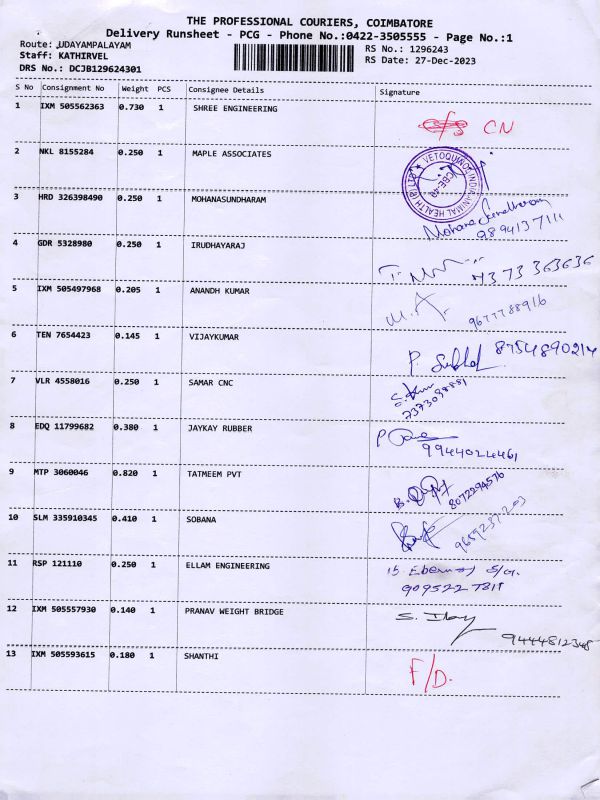 THE PROFESSIONAL COURIERS, COIMBATORE
Delivery Runsheet - PCG - Phone No.:0422-3505555 - Page No.:1
Route: UDAYAMPALAYAM
RS No.: 1296243
Staff: KATHIRVEL
RS Date: 27-Dec-2023
DRS No.: DCJB129624301
S No Consignment No Weight PCS Consignee Details Signature
1 IXM 505562363 0.730 1 SHREE ENGINEERING
CN
2 NKL 8155284 0.250 1 MAPLE ASSOCIATES
VETOQUINOL INDIA ANIMAL HEALTH (P) LTD
3 HRD 326398490 0.250 1 MOHANASUNDHARAM
Mohana Sundharam
9894137111
4 GDR 5328980 0.250 1 IRUDHAYARAJ
7373363636
5 IXM 505497968 0.205 1 ANANDH KUMAR
9677788916
6 TEN 7654423 0.145 1 VIJAYKUMAR
8754890214
7 VLR 4558016 0.250 1 SAMAR CNC
8 EDQ 11799682 0.380 1 JAYKAY RUBBER
9944024461
9 MTP 3060046 0.820 1 TATMEEM PVT
8072294576
10 SLM 335910345 0.410 1 SOBANA
11 RSP 121110 0.250 1 ELLAM ENGINEERING
12 IXM 505557930 0.140 1 PRANAV WEIGHT BRIDGE
9444812348
13 IXM 505593615 0.180 1 SHANTHI
F/D.